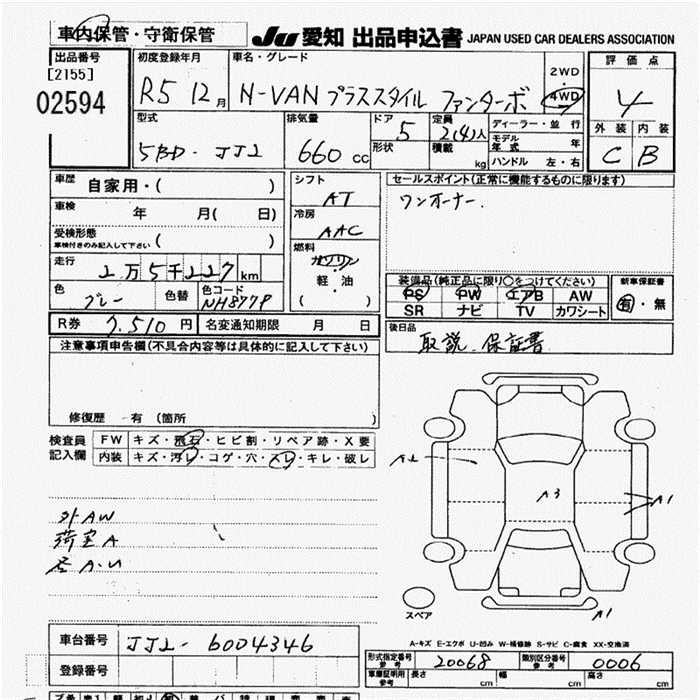 車内保管・守衛保管 JU 愛知 出品申込書 JAPAN USED CAR DEALERS ASSOCIATION
出品番号 [2155] 02594
初度登録年月 R5 12月
車名・グレード N-VAN プラススタイル ファンターボ
2WD・4WD
評価点 4
外装 C 内装 B
型式 5BD-JJ2
排気量 660 cc
ドア 5 形状
定員 2(4)人 積載 kg
ディーラー・並行
モデル年式 年
ハンドル 左・右
車歴 自家用・( )
車検 年 月( 日)
受検形態 車検付きのみ記入して下さい ( )
走行 2万5千227km
色 グレー 色替 色コード NH877P
シフト AT
冷房 AAC
燃料 ガソリン 軽・油 ( )
セールスポイント(正常に機能するものに限ります)
ワンオーナー.
装備品(純正品に限り○をつけてください)
PS PW エアB AW
SR ナビ TV カワシート
新車保証書 有・無
R券 7,510円 名変通知期限 月 日
後日品 取説.保証書
注意事項申告欄(不具合内容等は具体的に記入して下さい)
修復歴 有 (箇所 )
検査員記入欄
FW キズ・飛石・ヒビ割・リペア跡・X要
内装 キズ・汚レ・コゲ・穴・スレ・キレ・破レ
外AW
荷室A
A.U
A2
A3
A1
A1
スペア
A-キズ E-エクボ U-凹み W-補修跡 S-サビ C-腐食 XX-交換済
車台番号 JJ2-6004346
登録番号
形式指定番号 参考 20068 類別区分番号 参考 0006
車庫証明用 参考 長さ cm 幅 cm 高さ cm